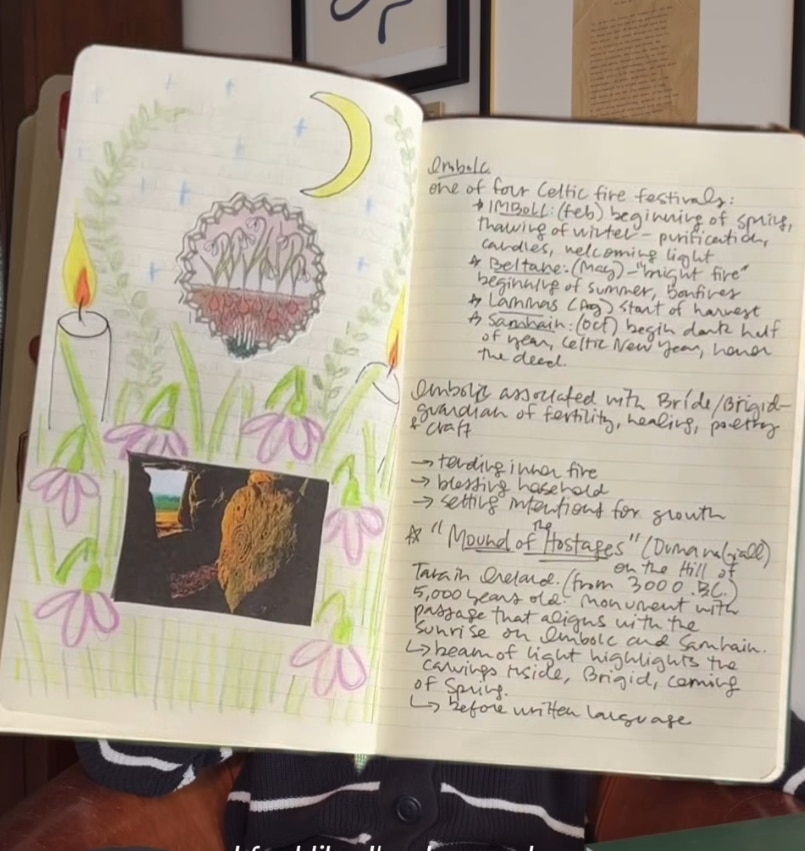 Imbolc
one of four Celtic fire festivals:
* IMBOLC: (Feb) beginning of spring,
thawing of winter - purification,
candles, welcoming light
* Beltane: (May) - "bright fire"
beginning of summer, bonfires
* Lammas (Aug) start of harvest
* Samhain: (Oct) begin dark half
of year, Celtic New Year, honor
the dead.
Imbolic associated with Bride/Brigid -
guardian of fertility, healing, poetry
& craft
→ tending inner fire
→ blessing household
→ setting intentions for growth
* "Mound of the Hostages" (Duma na nGiall)
on the Hill of
Tara in Ireland. (from 3000 BC.)
5,000 years old. Monument with
passage that aligns with the
sunrise on Imbolc and Samhain.
↳ beam of light highlights the
carvings inside, Brigid, coming
of Spring.
↳ before written language